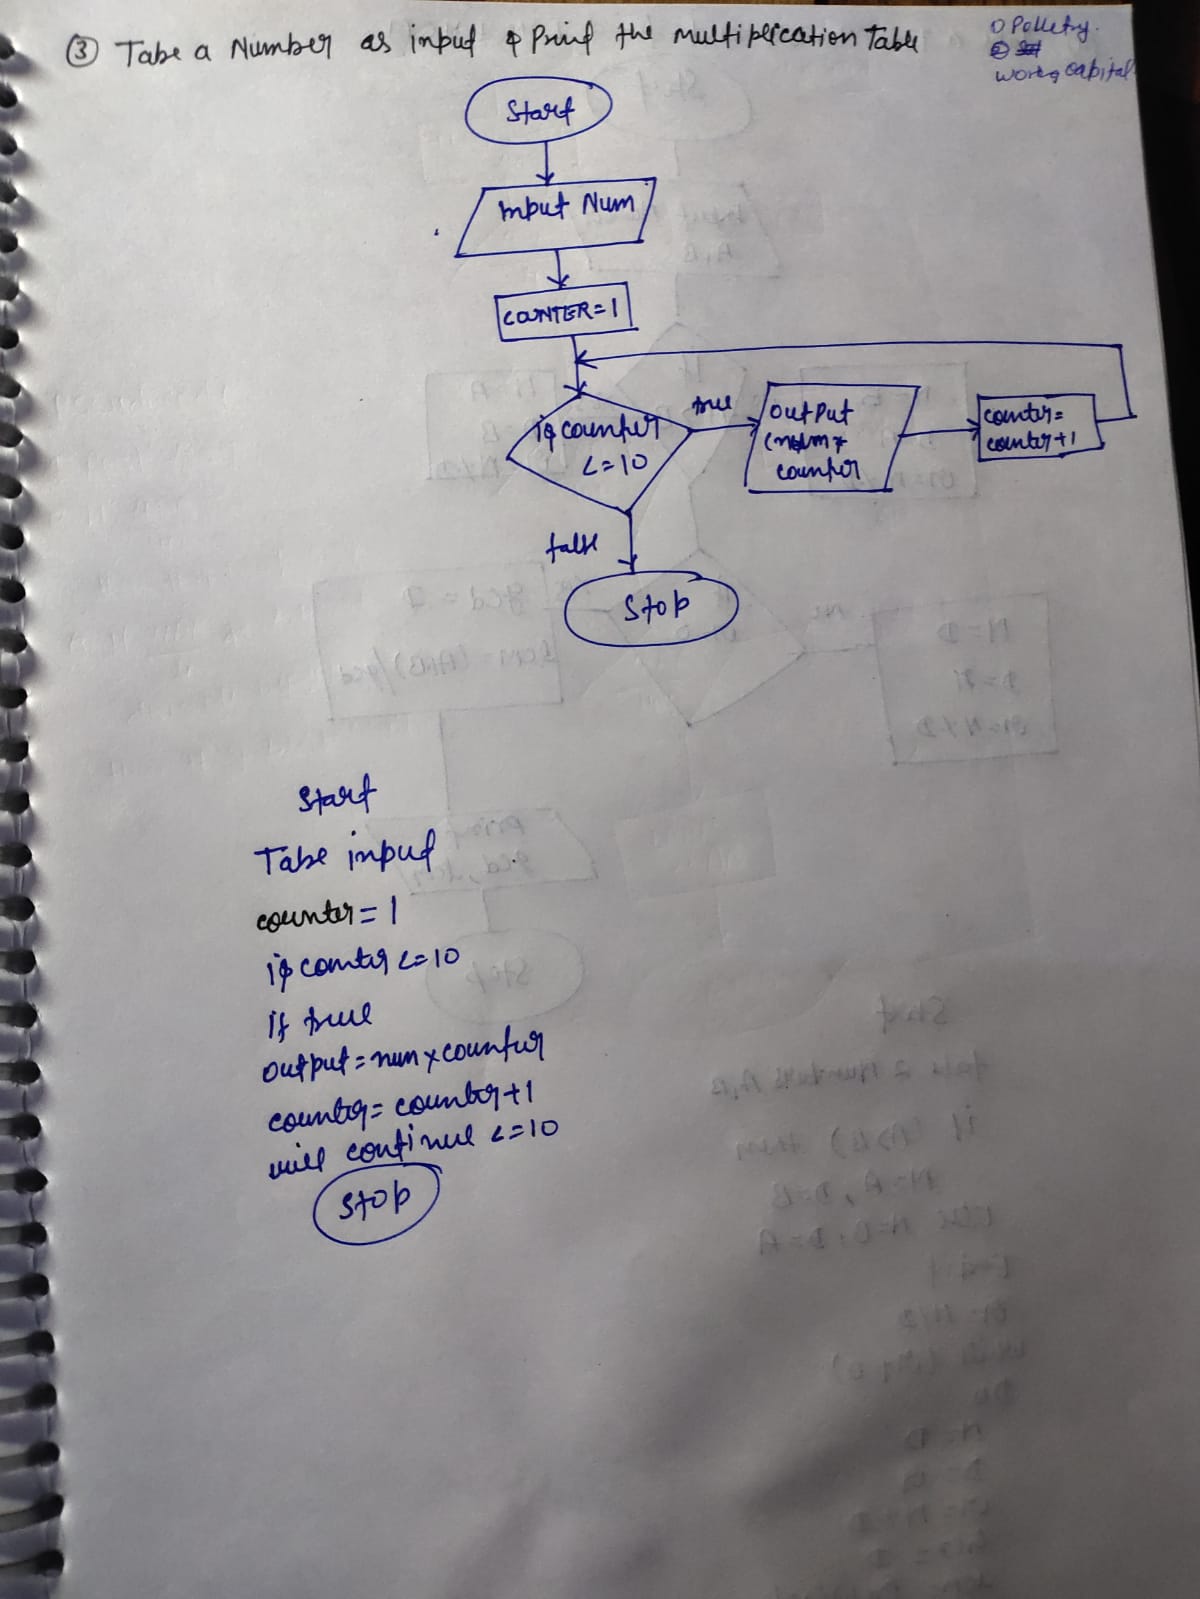 ③ Take a Number as input & Print the multiplication Table
Poultry.
working capital
Start
Input Num
COUNTER = 1
if counter
<= 10
true
output
(num *
counter
counter =
counter + 1
false
Stop
Start
Take input
counter = 1
if counter <= 10
if true
output = num x counter
counter = counter + 1
will continue <= 10
Stop